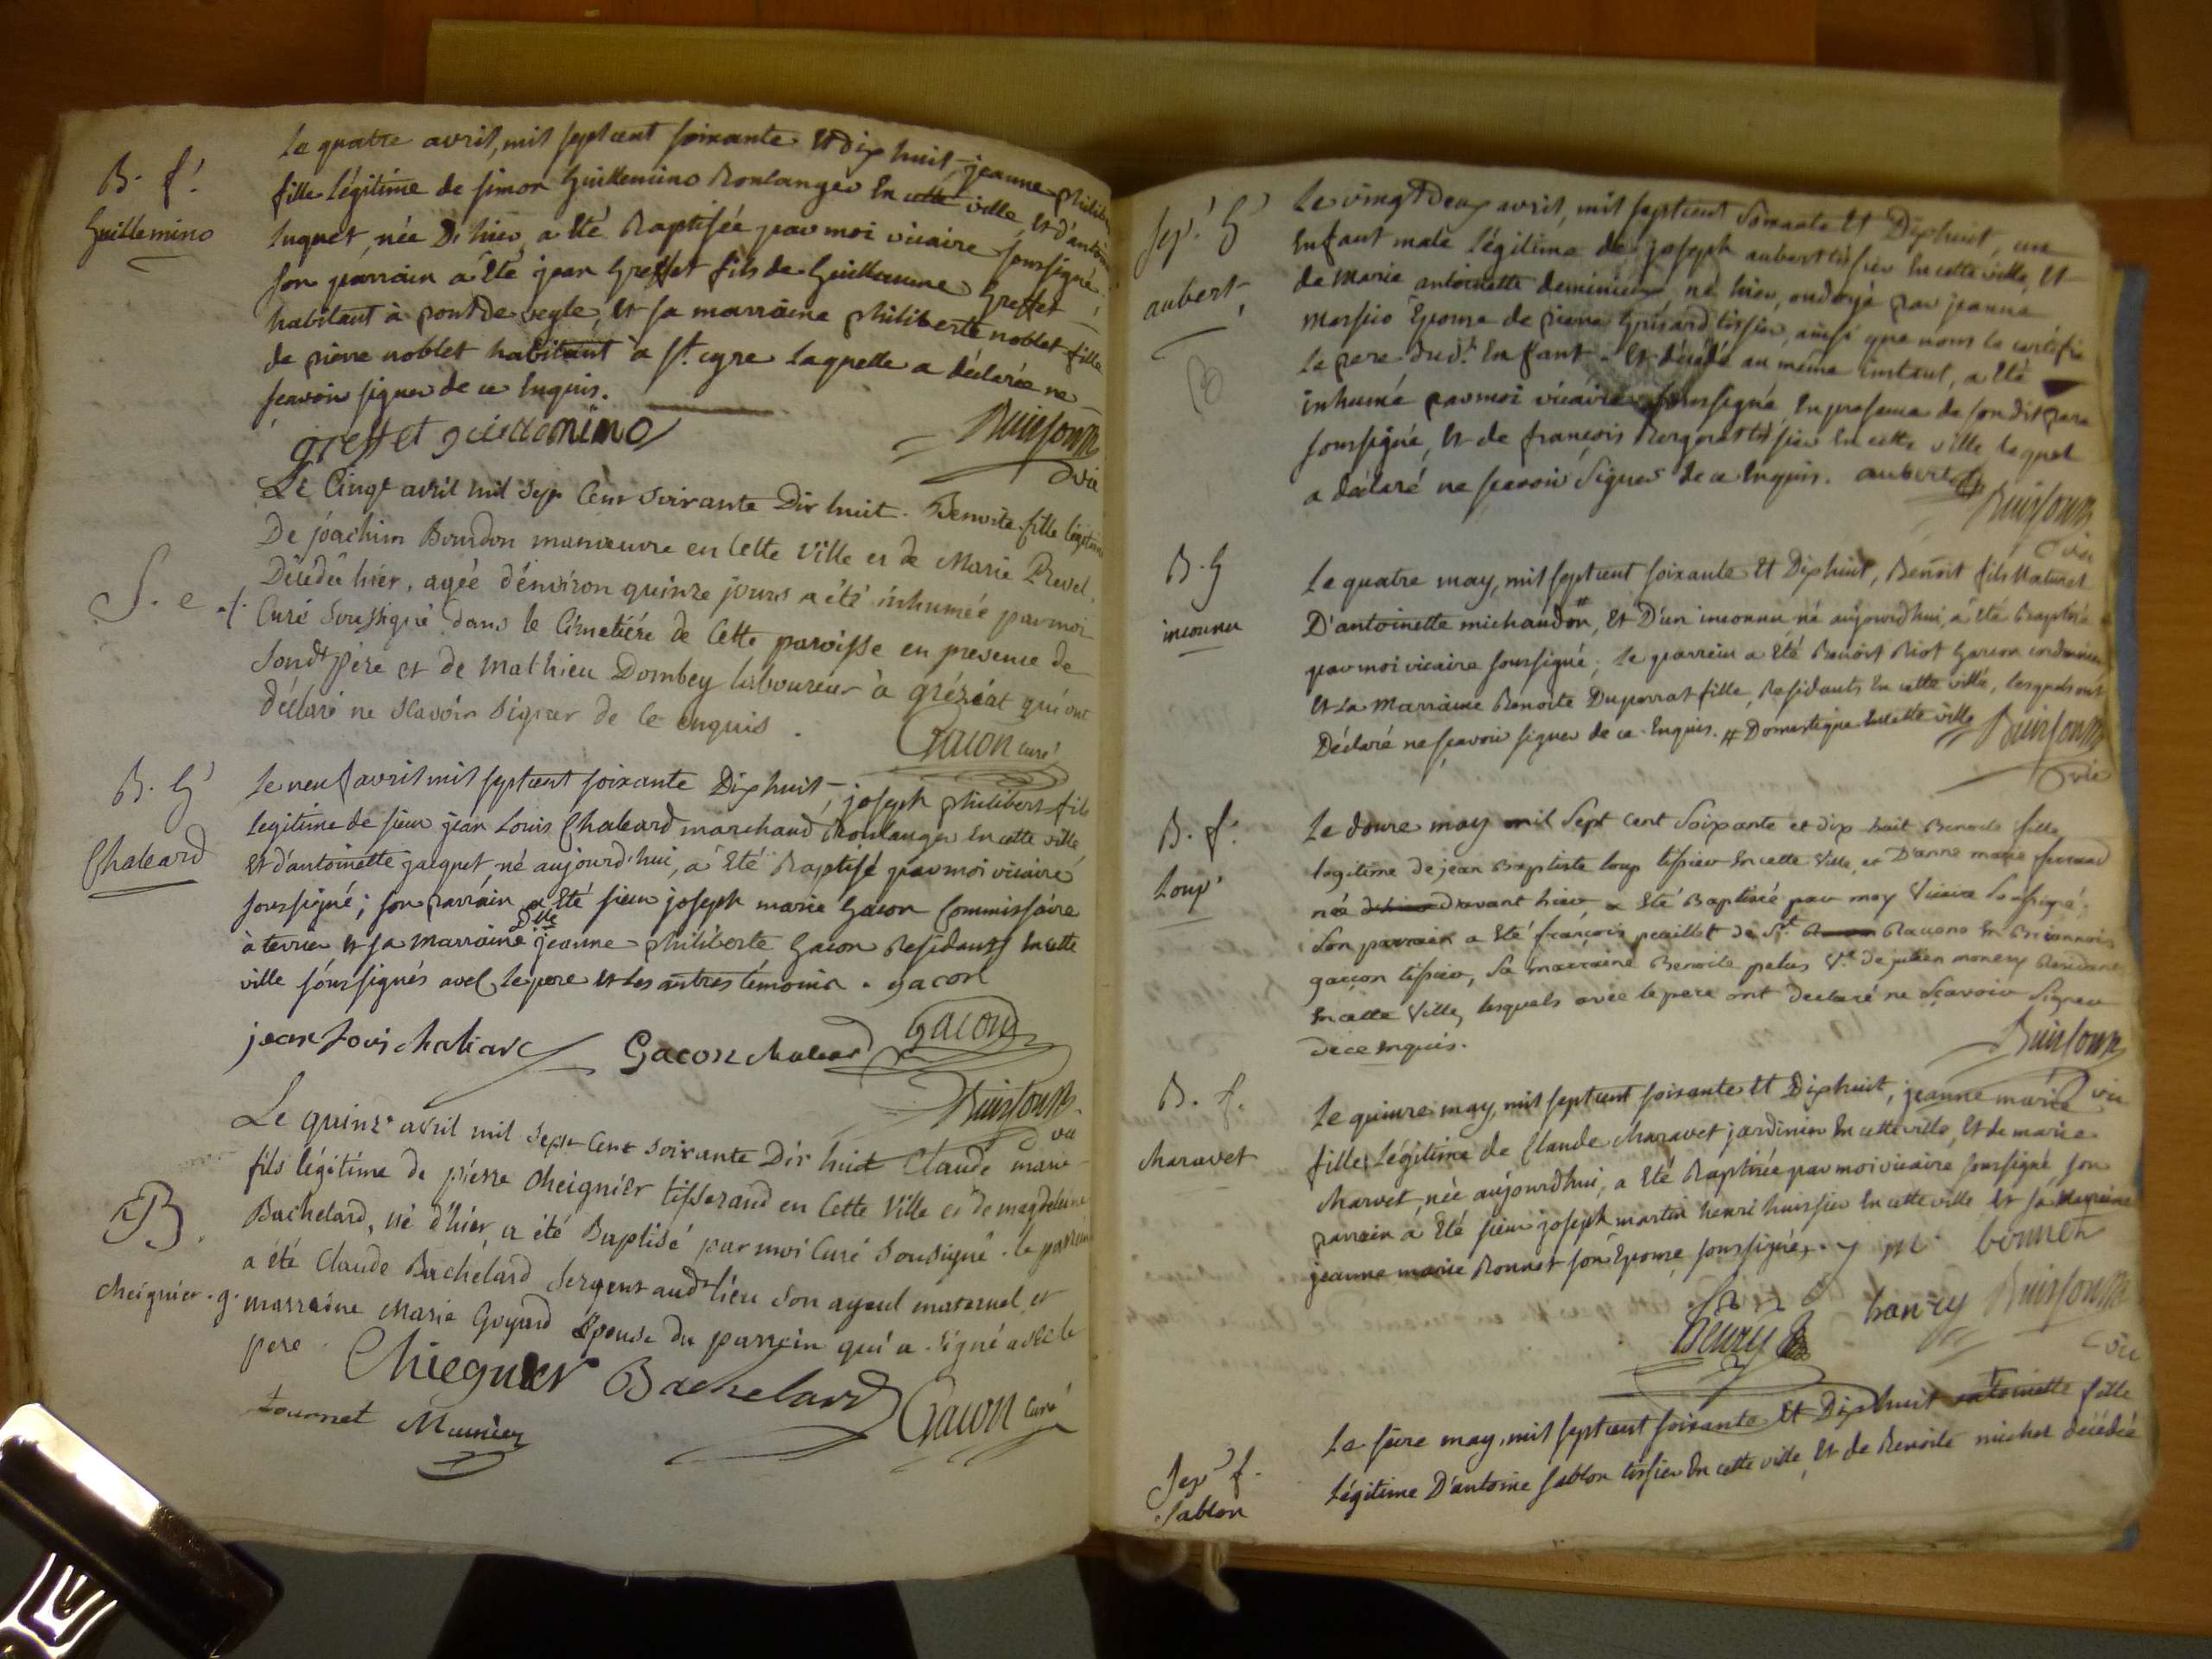 B. f.
Guillemino
Le quatre avril, mil sept cent soixante et dix huit, jeanne philiberte
fille légitime de simon Guillemino Boulanger en cette ville, et d'antoinette
luquet, née d'hier, a été Baptisée par moi vicaire soussigné;
son parrain a été jean Greffet fils de Guillaume Greffet
habitant à pont de vegle, et sa marraine philiberte noblet fille
de pierre noblet habitant à st. cyre laquelle a déclarée ne
scavoir signer de ce Enquis.
greffet guillemino
Buisson
vic
S. e. f.
Le Cinqe avril mil Sept Cent Soixante Dix huit. Benoite fille légitime
De joachim Bourdon manœuvre en Cette Ville et de Marie Revel.
Décédée hier, agée d'environ quinze jours a été inhumée par moi
Curé Soussigné dans le Cimetière de Cette paroisse en presence de
Sondt père et de Mathieu Dombey laboureur à gréziat qui ont
déclaré ne Scavoir Signer de Ce enquis.
Gacon Curé
B. G
Chaleard
Le neuf avril mil sept cent soixante Dix huit, joseph philibert fils
legitime de sieur jean Louis Chaleard marchand Boulanger en cette ville
Et d'antoinette jacquet, né aujourd'hui, a Eté Baptisé par moi vicaire
soussigné; son parrain a Eté sieur joseph marie Gacon Commissaire
à terrier et sa marraine Dlle jeanne philiberte Gacon Residants en cette
ville soussignés avec le pere et les autres témoins. gacon
jean Loui chaliard Gacon chaleard Gacon
Buisson
vic
B.
cheignier. g.
Le quinze avril mil Sept Cent Soixante Dix huit Claude marie
fils légitime de pierre Cheignier tisserand en Cette Ville et de magdeleine
Bachelard, né d'hier, a été Baptisé par moi Curé Sousigné. le parrain
a été Claude Bachelard Sergent audt lieu Son ayeul maternel et
marraine Marie Goyard Epouse du parrain qui a Signé avec le
pere.
Chiegnier Bachelard Gacon Curé
tournet Munier
Sep. G
aubert
Le vingt Deux avril, mil sept cent Soixante Et Dix huit, un
Enfant male légitime de joseph aubert tissier En cette ville, Et
de Marie antoinette né hier, ondoyé par jeanne
Epouse de pierre tissier, ainsi que nous la certifié
le pere dudt. Enfant. Et décédé au même instant, a Eté
inhumé par moi vicaire soussigné En presence de son dit pere
soussigné, Et de françois tissier En cette ville lequel
a déclaré ne scavoir Signer de ce Enquis. aubert
Buisson
vic
B. G
inconnu
Le quatre may, mil sept cent soixante Et Dix huit, Benoit fils Naturel
D'antoinette michaudon #, Et D'un inconnu né aujourdhui, a Eté Baptisé
par moi vicaire soussigné; le parrein a Eté Benoit Riot Garcon cordonnier
Et la Marraine Benoite Duperrat fille, Residants En cette ville, lesquels ont
Déclaré ne sçavoir signer de ce Enquis. # Domestique En cette ville Buisson
vic
B. f.
Loup
Le douze may mil Sept Cent Soixante et dix huit Benoite fille
legitime de jean Baptiste loup tissier En cette Ville, et D'anne marie
née d'avant hier a Eté Baptisée par moy Vicaire Sousigné;
Son parrain a Eté françois peuillet de St. Racono En Brionnois
garcon tissier, Sa marraine Benoite pelus Ve. de julien monery Residants
En cette Ville, lesquels avec le pere ont declaré ne Sçavoir Signer
de ce enquis.
Buisson
vic
B. f.
charavet
Le quinze may, mil sept cent soixante Et Dix huit, jeanne marie
fille Légitime de Claude charavet jardinier En cette ville, Et de marie
charvet, née aujourdhui, a Eté Baptisée par moi vicaire soussigné son
parrain a Eté sieur joseph martin henri huissier En cette ville Et sa Marraine
jeanne marie Bonnet son Epouse soussignés. bonnet
henry hanry Buisson
vic
Sep. f.
Sablon
Le seize may, mil sept cent soixante Et Dix huit antoinette fille
légitime D'antoine Sablon tissier En cette ville, Et de Benoite michel décédée